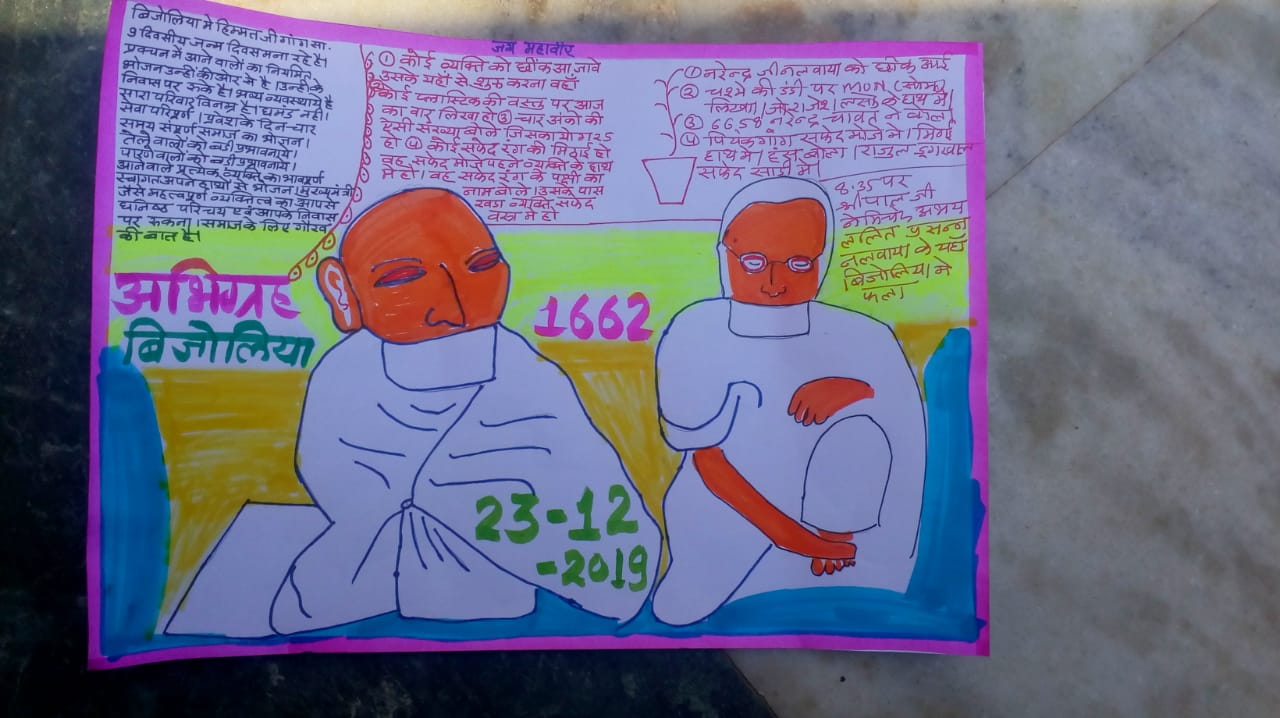 जय महावीर
बिजोलिया में हिम्मत जी गोगसा.
9 दिवसीय जन्म दिवस मना रहे है।
प्रवचन में आने वालों का नियमित
भोजन उन्ही की ओर से है। उन्ही के
निवास पर रुके है। भव्य व्यवस्थाये है
सारा परिवार विनम्र है। घमंड नही।
सेवा परिपूर्ण। प्रवेश के दिन चार
समय संपूर्ण समाज का भोजन।
तेले वालो को बडी प्रभावनाये।
पारणे वालो को बडी प्रभावनाये।
आनेवाले प्रत्येक व्यक्ति का भावपूर्ण
स्वागत अपने हाथों से भोजन।
जैसे महत्वपूर्ण व्यक्तित्व का आपसे
घनिष्ठ परिचय एवं आपके निवास
पर रुकना। समाज के लिए गौरव
की बात है।
① कोई व्यक्ति को छींक आ जावे
उसके यहाँ से शुरू करना वहाँ
कोई प्लास्टिक की वस्तु पर आज
का वार लिखा हो ③ चार अंको की
ऐसी संख्या बोले जिसका योग 25
हो ④ कोई सफेद रंग की मिठाई हो
वह सफेद मोजे पहने व्यक्ति के हाथ
में हो। वह सफेद रंग के पुष्पो का
नाम बोले। उसके पास
खडा व्यक्ति सफेद
वस्त्र मे हो
① नरेन्द्र जी नलवाया को छींक आई
② चश्मे की डंडी पर MON (सोम)
लिखा। के हाथ में।
③ 6658 नरेन्द्र चावत ने बोला
④ सफेद मोजे में। मिठाई
हाथ में। बोला। राजुल
सफेद साडी में।
8.35 पर
श्रीपाल जी
अभय
ललित प्रसन्न
नलवाया के यहाँ
बिजोलिया मे
फला
अभिग्रह
बिजोलिया
1662
23-12
-2019